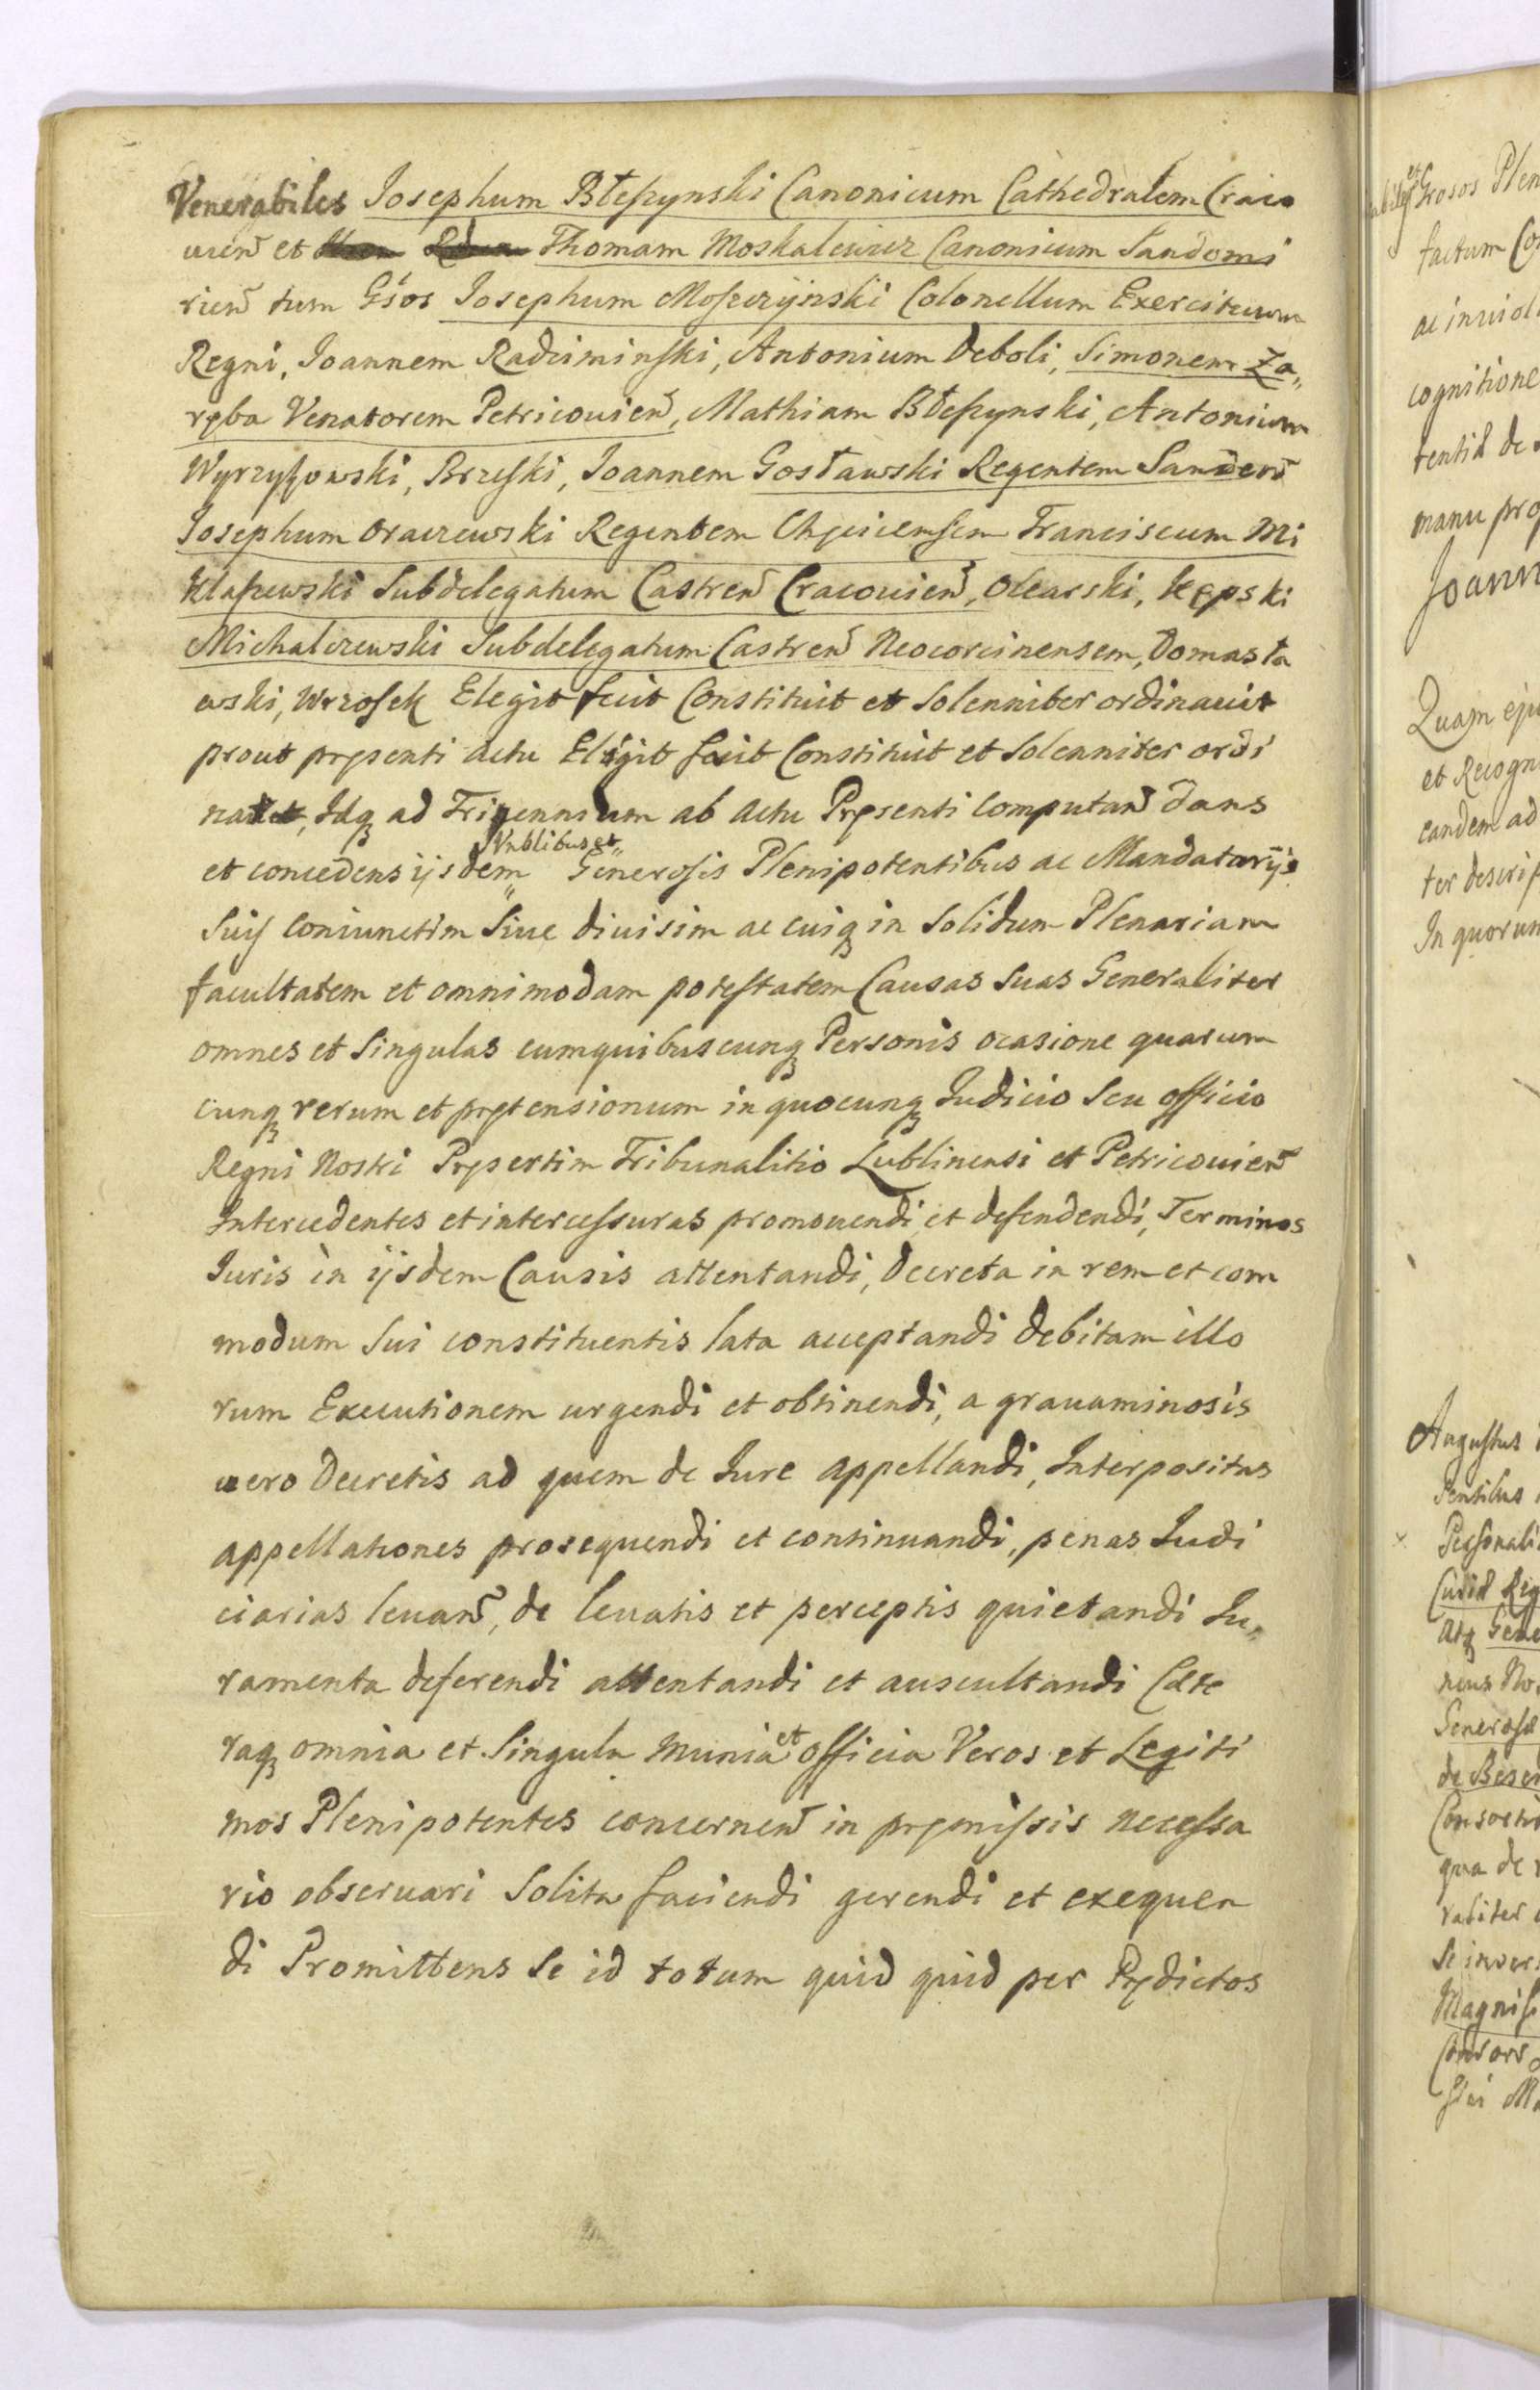 Venerabiles Josephum Błeszynski Canonicum Cathedralem Craco
uien̄ et Thomam Moskalewicz Canonicum Sandomi
rien̄ tum Gsos Josephum Moszczynski Colonellum Exercituum
Regni, Joannem Radziminski, Antonium Deboli, Simonem Za„
ręba Venatorem Petricouien̄, Mathiam Błeszynski, Antonium
Wyrzyszowski, Brzeski, Joannem Gosławski Regentem Sanden̄
Josephum Oraczewski Regentem Chęcicensem Franciscum Mi
klaszewski Subdelegatum Castren̄ Cracouien̄, Olearski, Kępski
Michalczewski Subdelegatum Castren̄ Neocorcinensem, Domasła
wski, Wrzosek Elegit fecit Constituit et Solenniter ordinauit
prout pręsenti Actu Eligit facit Constituit et Solenniter ordi
nat, Idq ad Triennium ab Actu Pręsenti Computan̄ dans
Vnblibus et„
et concedens ijsdem Generosis Plenipotentibus ac Mandatarijs
Suis coniunctim Siue diuisim ac cuiq in Solidum Plenariam
facultatem et omnimodam potestatem Causas Suas Generaliter
omnes et Singulas cumquibuscunq Personis ocasione quarum
cunq rerum et prętensionum in quocunq Judicio Seu officio
Regni Nostri Pręsertim Tribunalitio Lublinensi et Petricouien̄
Intercedentes et intercessuras promouendi et defendendi, Terminos
Juris in ijsdem Causis attentandi, Decreta in rem et com
modum Sui constituentis lata acceptandi debitam illo
rum Executionem urgendi et obtinendi, a grauaminosis
uero Decretis ad quem de Jure appellandi, Interpositas
appellationes prosequendi et continuandi, penas Judi
ciarias leuan̄, de leuatis et perceptis quietandi Ju„
ramenta deferendi attentandi et auscultandi Cæte
raq omnia et Singula munia et officia Veros et Legiti
mos Plenipotentes concernen̄ in pręmissis necessa
rio obseruari Solita faciendi gerendi et exequen
di Promittens Se id totum quid quid per Prędictos
et Grosos Plen
factum Co
ac inuiol
cognitione
tentiæ de
manu prop
Joann
Quam eju
et Recogn
eandem ad
ter descrip
In quorum
Augustus
Personali
Reg
atq Gene
Generosæ
de
Consorti
qua de
Magnif